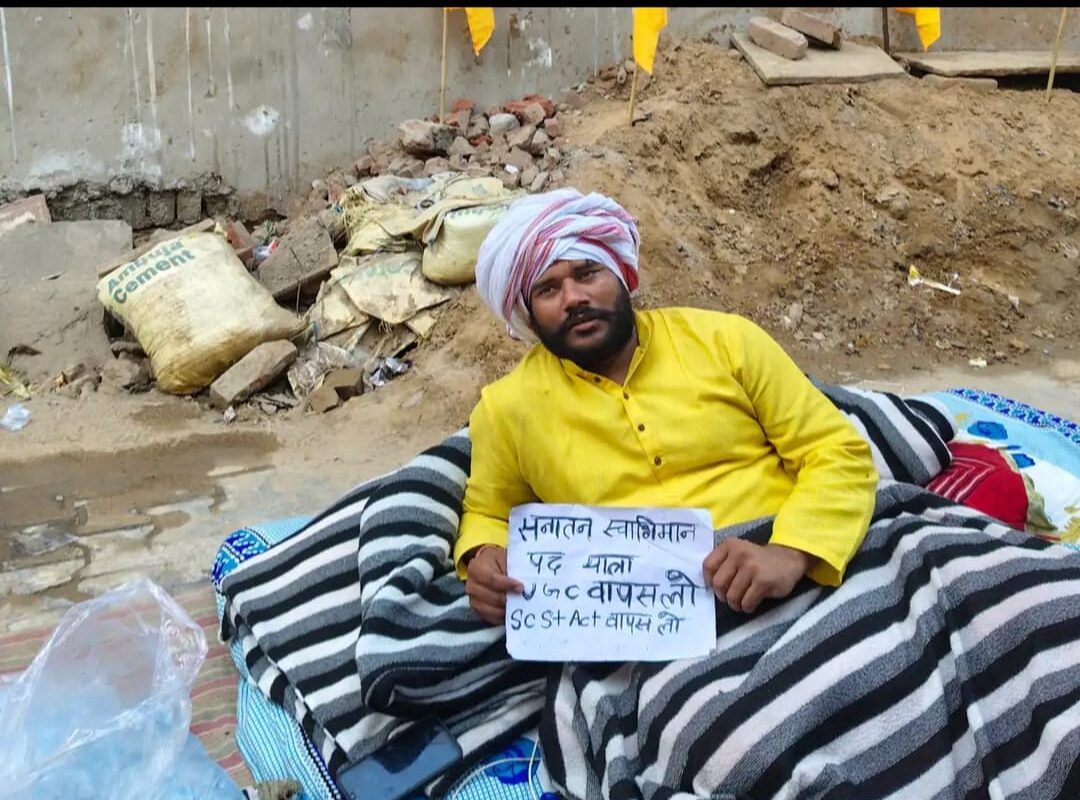 Ambuja
Cement
सनातन स्वाभिमान
पद यात्रा
UGC वापस लो
SC St Act वापस लो